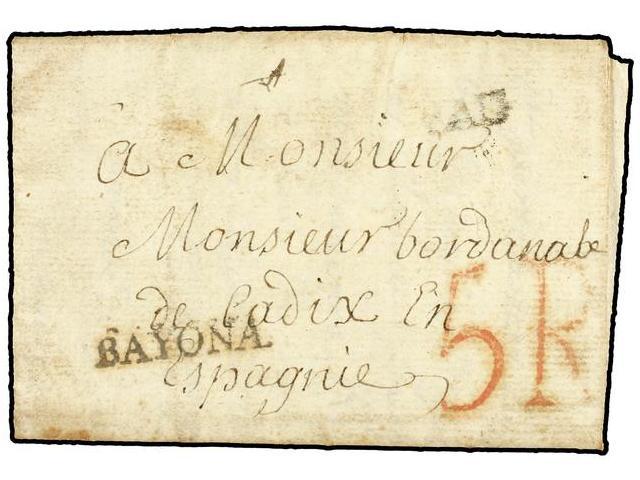 PAU
à Monsieur
Monsieur bordanabe
de Cadix En
BAYONA
Espagnie
5R